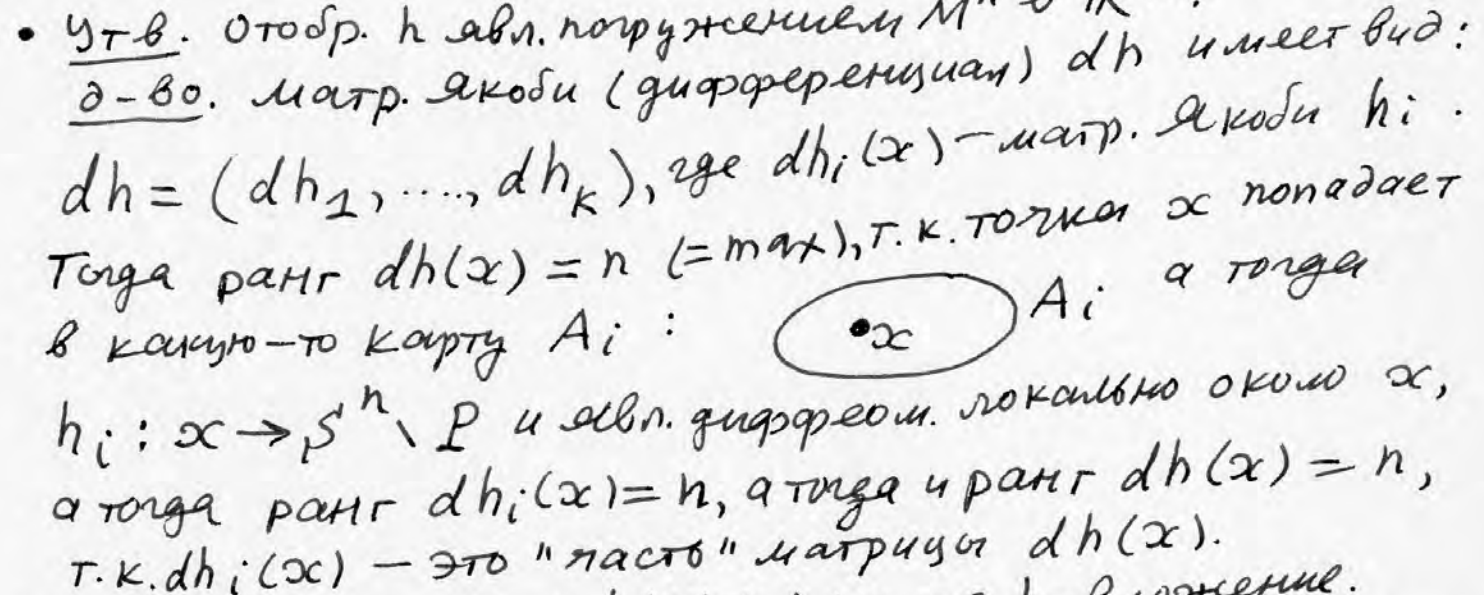 • Утв. Отобр. h явл. погружением Mⁿ в ℝ
д-во. Матр. Якоби (дифференциал) dh имеет вид:
dh = (dh₁, ...., dhₖ), где dhᵢ(x) – матр. Якоби hᵢ.
Тогда ранг dh(x) = n (=max), т.к. точка x попадает
в какую-то карту Aᵢ : •x Aᵢ а тогда
hᵢ : x → Sⁿ \ P и явл. диффеом. локально около x,
а тогда ранг dhᵢ(x) = n, а тогда и ранг dh(x) = n,
т.к. dhᵢ(x) – это "часть" матрицы dh(x).
вложение.